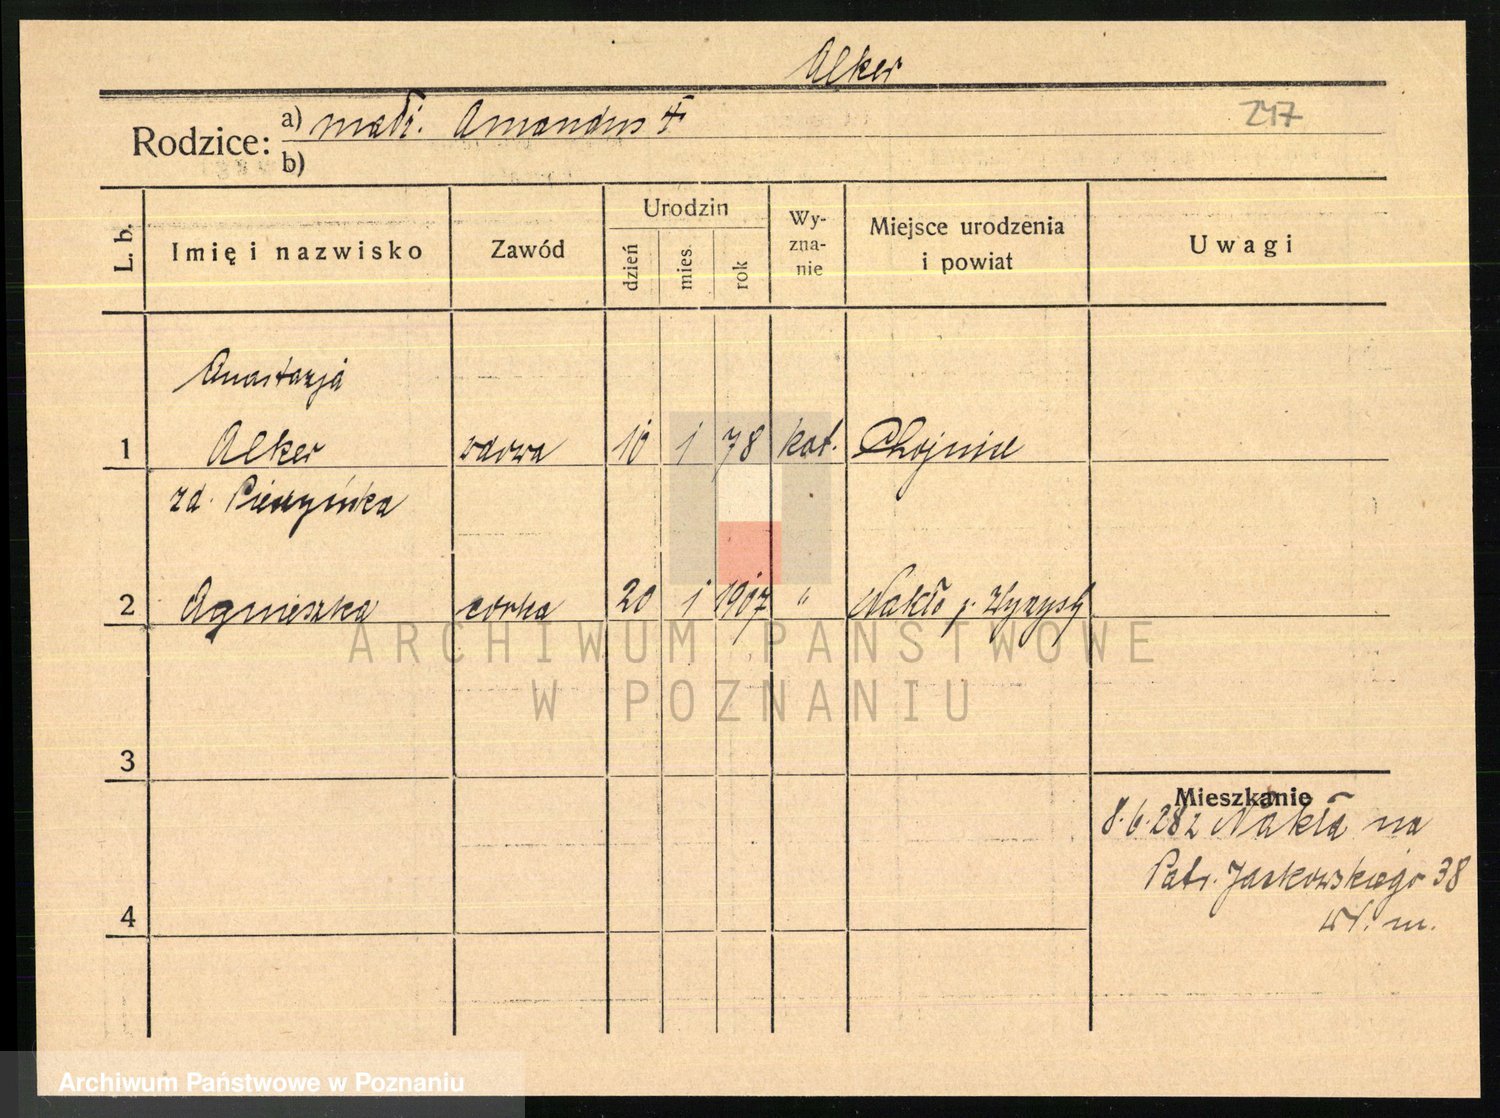 Alker
Rodzice: a) małż. Amandus †
247
b)
L. b.
Imię i nazwisko
Zawód
Urodzin
dzień
mies.
rok
Wy-
zna-
nie
Miejsce urodzenia
i powiat
Uwagi
Anastazja
1 Alker wdowa 10 1 78 kat. Chojnice
zd.
2 Agnieszka córka 20 1 1907 " Nakło p. Wyrzysk
ARCHIWUM PAŃSTWOWE
W POZNANIU
3
Mieszkanie
8.6.28 z Nakła na
Patr. Jackowskiego 38
4
m.
Archiwum Państwowe w Poznaniu